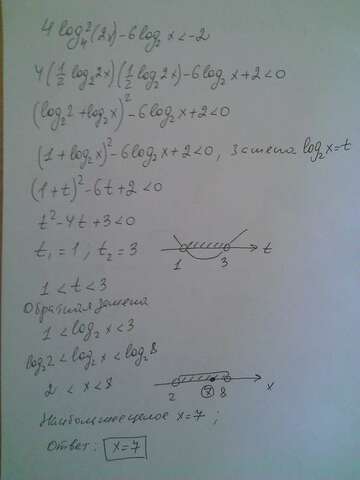 4 log₄²(2x) - 6 log₂ x < -2
4(1/2 log₂ 2x)(1/2 log₂ 2x) - 6 log₂ x + 2 < 0
(log₂ 2 + log₂ x)² - 6 log₂ x + 2 < 0
(1 + log₂ x)² - 6 log₂ x + 2 < 0, замена log₂ x = t
(1 + t)² - 6t + 2 < 0
t² - 4t + 3 < 0
t₁ = 1; t₂ = 3
1 3 t
1 < t < 3
Обратная замена
1 < log₂ x < 3
log₂ 2 < log₂ x < log₂ 8
2 < x < 8
2 7 8 x
Наибольшее целое x = 7;
Ответ: x = 7